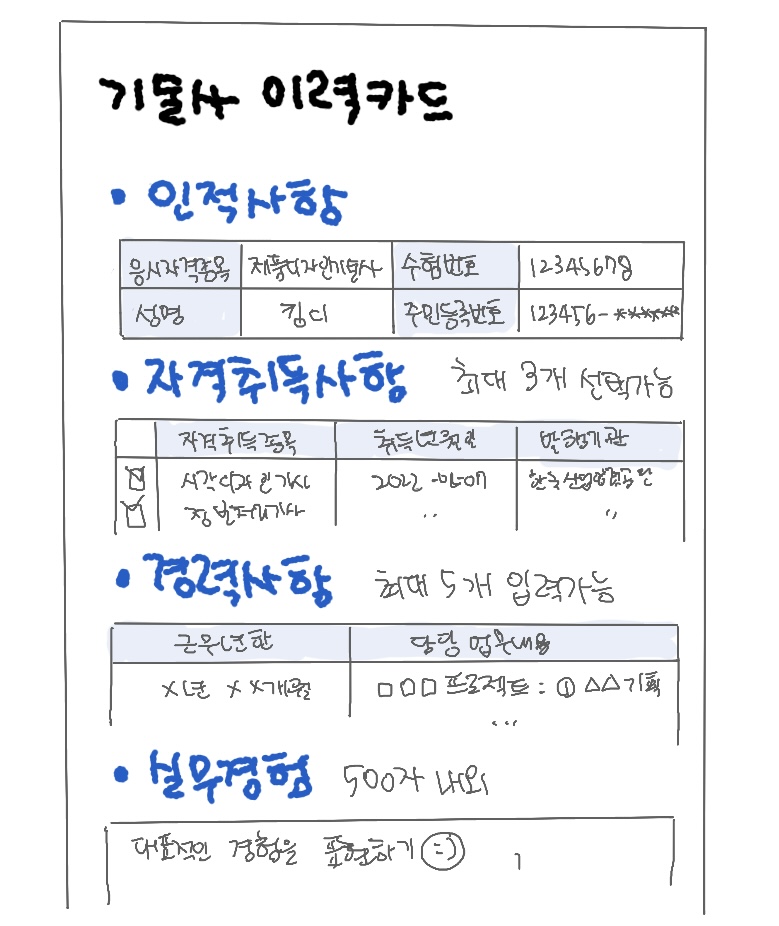 기술사 이력카드
• 인적사항
응시자격종목 제품디자인기술사 수험번호 12345678
성명 킴디 주민등록번호 123456-******
• 자격취득사항 최대 3개 선택가능
자격취득종목 취득년월일 발행기관
시각디자인기사 2022 -06-07 한국산업인력공단
정보처리기사 〃 〃
• 경력사항 최대 5개 입력가능
근무년한 담당 업무내용
×년 ××개월 □□□ 프로젝트 : ① △△기획
...
• 실무경험 500자 내외
대표적인 경험을 표현하기 =)